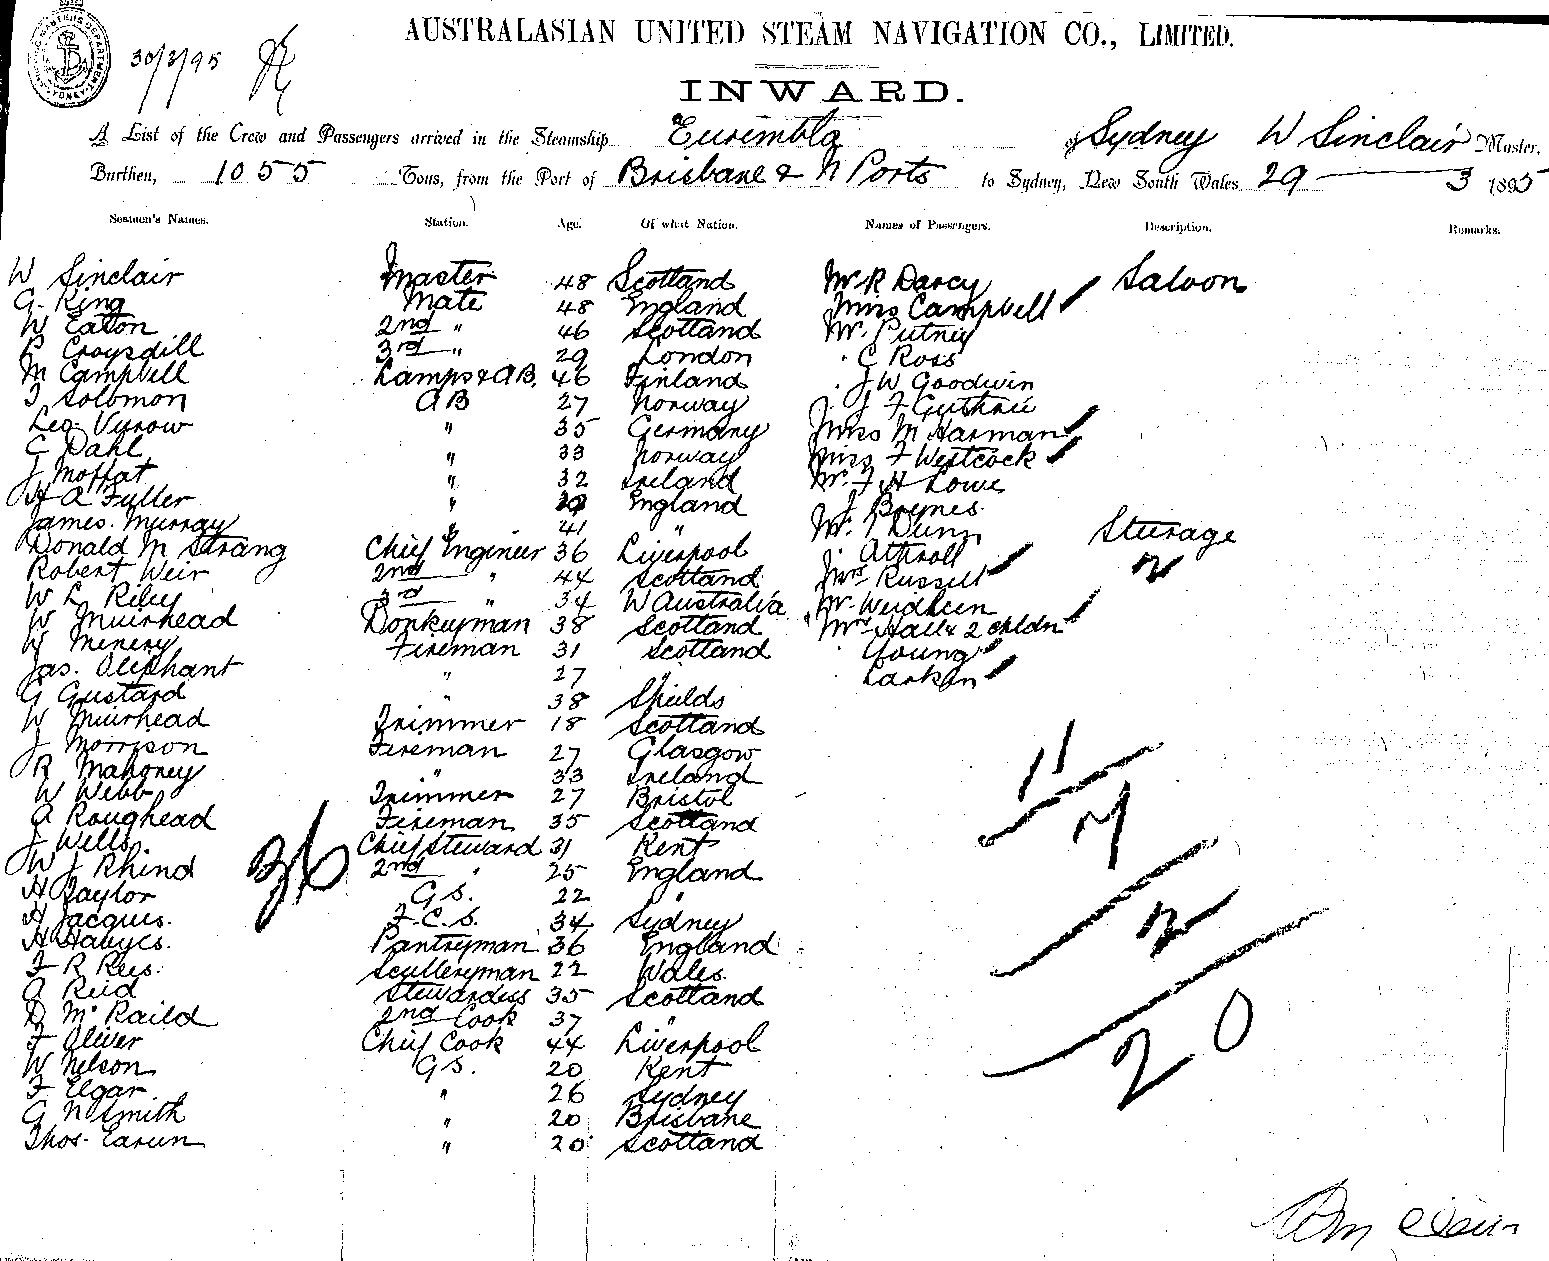 30/3/95
AUSTRALASIAN UNITED STEAM NAVIGATION CO., LIMITED.
INWARD.
A List of the Crew and Passengers arrived in the Steamship Eurimbla of Sydney W Sinclair Master,
Burthen, 1055 Tons, from the Port of Brisbane & N Ports to Sydney, New South Wales 29 3 1895
Seamen's Names. Station. Age. Of what Nation. Names of Passengers. Description. Remarks.
W Sinclair Master 48 Scotland Mr R Darcy Saloon
G. King Mate 48 England Miss Campbell
W Eaton 2nd " 46 Scotland Mr. Putney
R Croysdill 3rd " 29 London C Ross
M Campbell Lamps & AB. 46 Finland J W Goodwin
T Solomon AB 27 Norway J F Guthrie
Leo Vyrow " 35 Germany Miss M Harman
C Dahl " 33 Norway Miss F Westcock
J Moffat " 32 Ireland Mr. F H Lowe
H A Fuller " England J Boynes
James Murray " 41 " Mr. Dunn Sturage
Donald M Strang Chief Engineer 36 Liverpool Attroll 2
Robert Weir 2nd " 44 Scotland Mrs Russell
W L Riley 3rd " 34 W Australia Mr. Weidheen
W Muirhead Donkeyman 38 Scotland Mrs Hall & 2 chldn
W Menery Fireman 31 Scotland Young
Jas. Oliphant " 27 " Larken
G Gustard " 38 Shields
W Muirhead Trimmer 18 Scotland
J Morrison Fireman 27 Glasgow
R Mahoney " 33 Ireland
W Webb Trimmer 27 Bristol
A Roughead Fireman 35 Scotland
J Wells. Chief Steward 31 Kent
W J Rhind 2nd " 25 England
H Taylor G S. 22 "
H Jacques. F. C. S. 34 Sydney
H Hawyes. Pantryman 36 England
F R Rees. Sculleryman 22 Wales
A Reid Stewardess 35 Scotland
D McRaild 2nd Cook 37 "
F Oliver Chief Cook 44 Liverpool
W Nelson G S. 20 Kent
F Elgar " 26 Sydney
G N Smith " 20 Brisbane
Thos. Earun " 20 Scotland
36
11
7
2
20